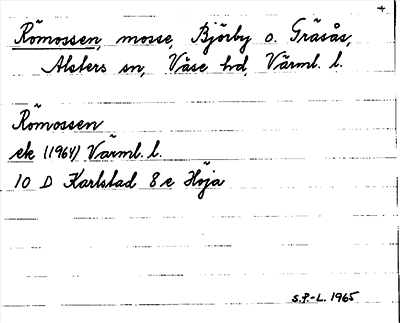 +
Römossen, mosse, Björby o. Gräsås,
Alsters sn, Väse hd, Värml. l.
Römossen
ek (1964) Värml. l.
10 D Karlstad 8 e Höja
S.P-L. 1965